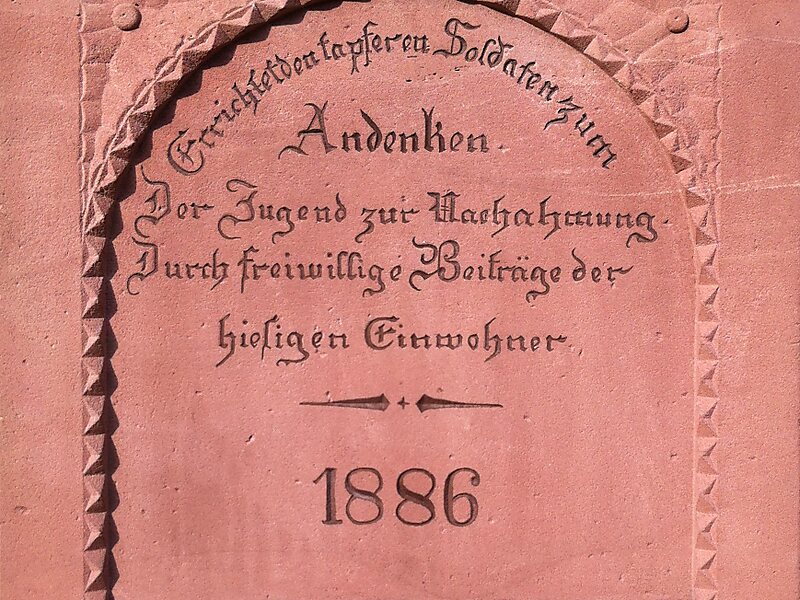 Errichtet den tapferen Soldaten zum
Andenken.
Der Jugend zur Nachahmung.
Durch freiwillige Beiträge der
hieſigen Einwohner.
1886